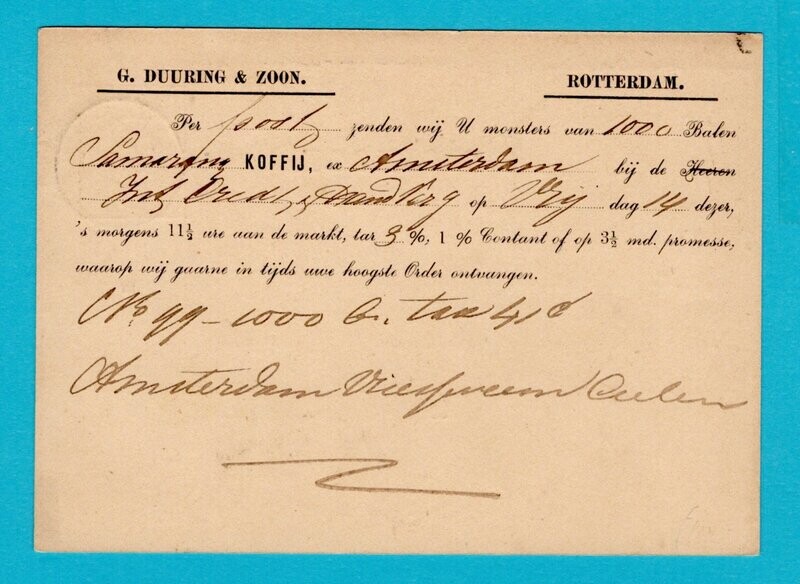 G. DUURING & ZOON. ROTTERDAM.
Per post zenden wij U monsters van 1000 Balen
Samarang KOFFIJ, ex Amsterdam bij de Heeren
Int Cred & Handverg op Vrij dag 14 dezer,
's morgens 11½ ure aan de markt, tar 3 %, 1 % Contant of op 3½ md. promesse,
waarop wij gaarne in tijds uwe hoogste Order ontvangen.
No 99 – 1000 b. tax 41 c
Amsterdam Vriesseveem